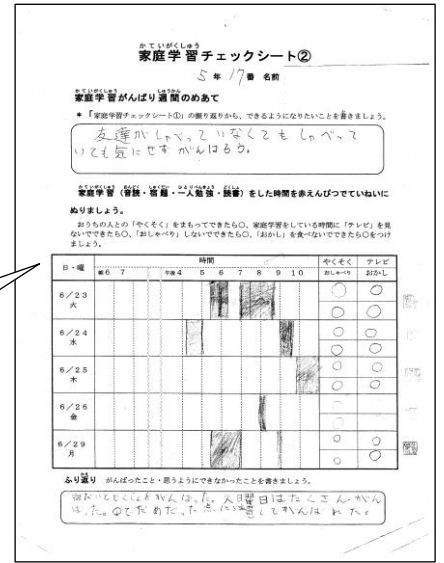 かていがくしゅう
家庭学習チェックシート②
5年 17番 名前
家庭学習がんばり週間のめあて
* 「家庭学習チェックシート①」の振り返りから、できるようになりたいことを書きましょう。
友達がしゃべっていなくてもしゃべって
いても気にせずがんばろう。
家庭学習（音読・宿題・一人勉強・読書）をした時間を赤えんぴつでていねいに
ぬりましょう。
おうちの人との「やくそく」をまもってできたら○、家庭学習をしている時間に「テレビ」を見
ないでできたら○、「おしゃべり」しないでできたら○、「おかし」を食べないでできたら○をつけ
ましょう。
日・曜 時間 やくそく テレビ
朝6 7 午後4 5 6 7 8 9 10 おしゃべり おかし
6/23
火
6/24
水
6/25
木
6/26
金
6/29
月
ふり返り がんばったこと・思うようにできなかったことを書きましょう。